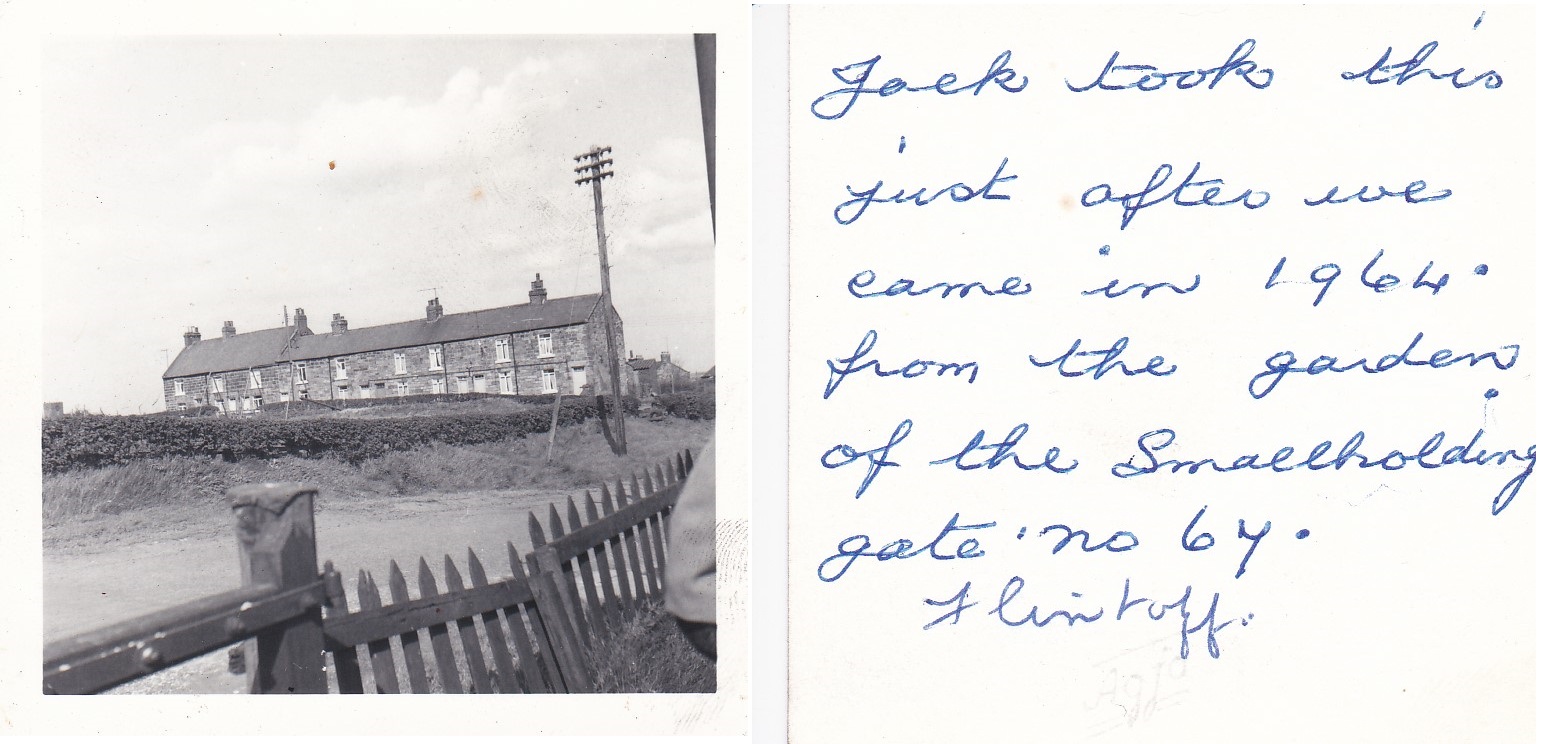 Jack took this
just after we
came in 1964.
from the garden
of the Smallholding
gate no 67.
Flintoff.